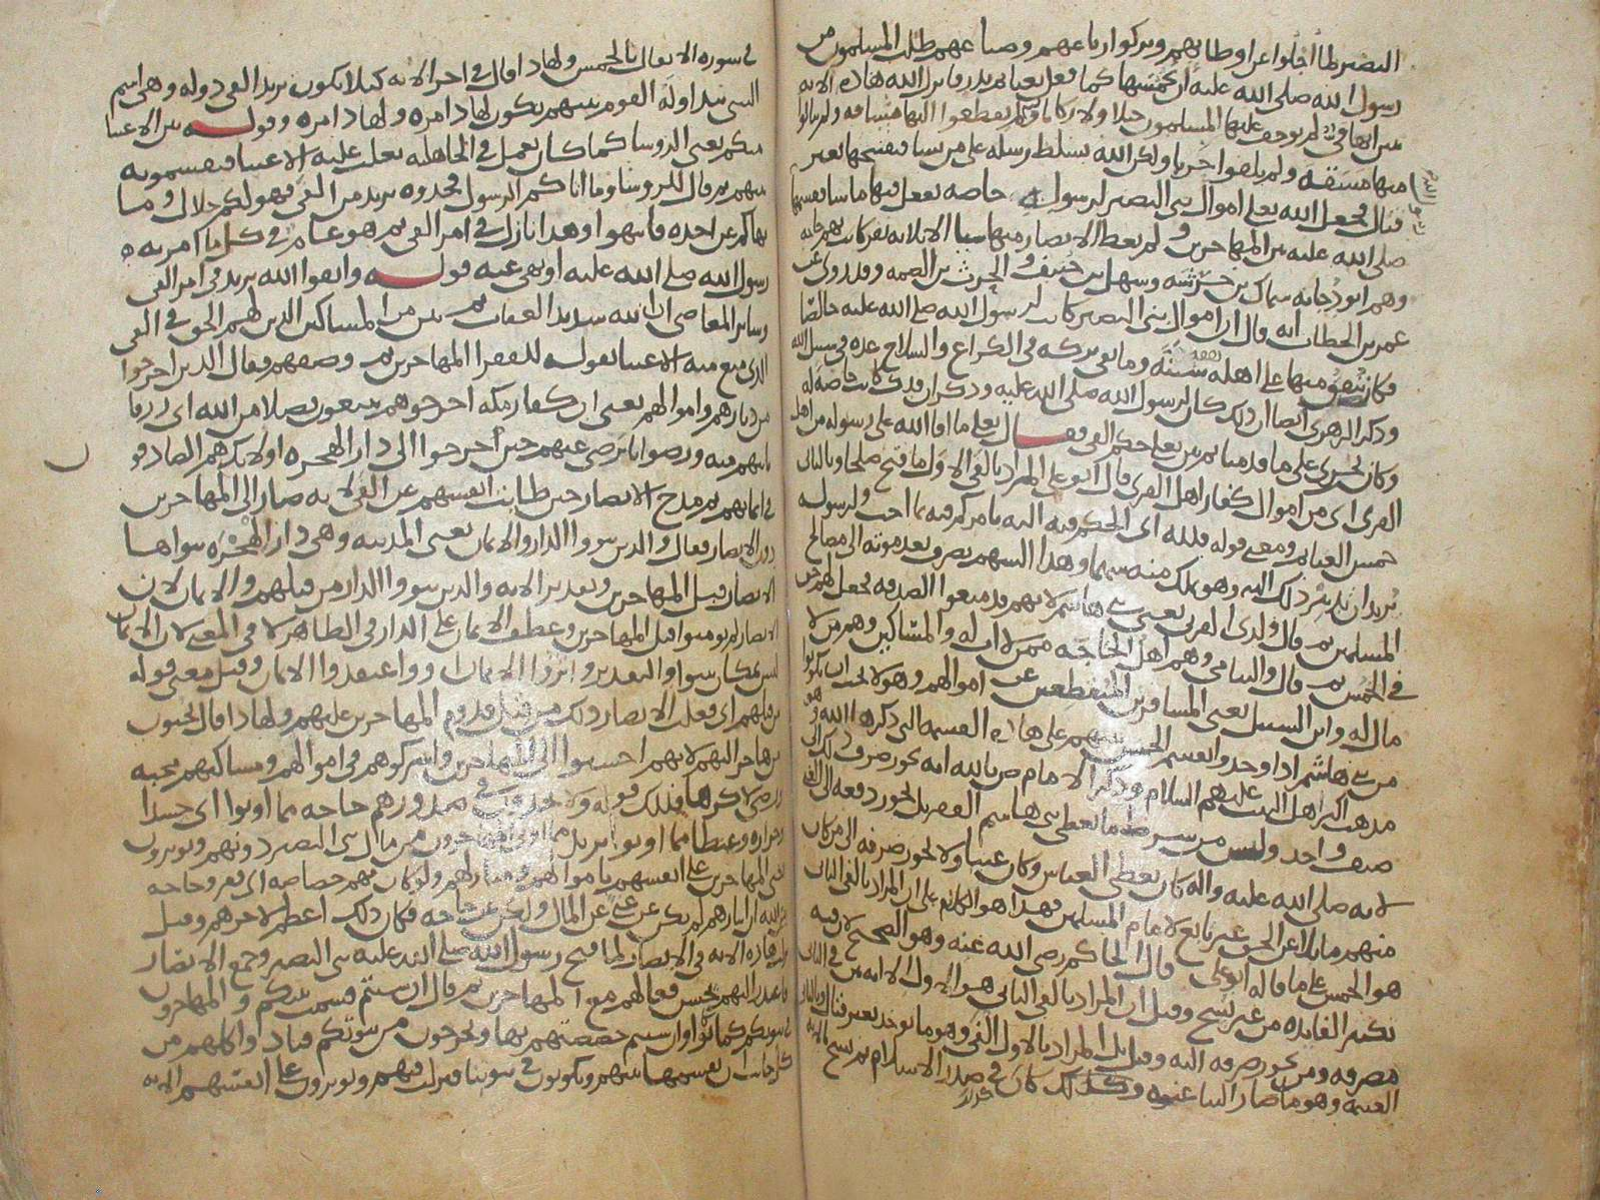 النضير لما أجلوا عن اوطانهم وتركوا رباعهم وضياعهم طلب المسلمون من
رسول الله صلى الله عليه ان يخمسها كما فعل بغنائم بدر فانزل الله هذه الآيه
لم يوجف عليها المسلمون خيلا ولا ركابا ولم يقطعوا اليها مسافه ولم ينالوا
فيها مشقه ولم يلقوا حربا ولكن الله يسلط رسله على من يشا فيفتحها بغير
قتال فجعل الله تعلى اموال بني النضير لرسول خاصه يفعل فيها ما يشا فقسمها
صلى الله عليه بين المهاجرين ولم يعط الانصار منها شيا الا ثلاثه نفر كانت بهم حاجه
وهم ابو دجانه سماك بن خرشه وسهل بن حنيف و الحرث بن الصمه وقد روي عن
عمر بن الخطاب انه قال ان اموال بني النضير كانت لرسول الله صلى الله عليه خالصا
فكان ينفق منها على اهله نفقه سنة وما بقي تركه في الكراع والسلاح عده في سبيل الله
وذكر الزهري ايضا ان ذلك كان لرسول الله صلى الله عليه وذكر ان فدك كانت خاصه له
وكان يجرى على ما قدمنا ثم بين تعلى حكم الفي فقال تعلى ما افا الله على رسوله من اهل
القرى اى من اموال كفار اهل القرى قال ابو علي المراد بالفي الاول ما فتح صلحا وبالثاني
خمس الغنايم ومعنى قوله فلله اى الحكم فيه اليه يامركم فيه بما احب ولرسوله
يريد ان تدبير ذلك اليه وهو يملك منه سهما وهذا السهم يصرف بعد موته الى مصالح
المسلمين ثم قال ولذى القربى يعنى بني هاشم لانهم قد منعوا الصدقه فجعل لهم حق
في الخمس ثم قال واليتامى وهم اهل الحاجه ممن لا اب له والمساكين وهم من لا
مال له وابن السبيل يعنى المسافرين المنقطعين عن اموالهم وهو لا يجب ان يكونوا
من بني هاشم اذا وجدوا يقسم الخمس بينهم على هذه القسمه التي ذكرها الله وهو
مذهب اكثر اهل البيت عليهم السلام وذكر الامام ص بالله انه يجوز صرف ذلك الى
صنف واحد وليس من شرط ما يعطى بني هاشم الفقر بل يجوز دفعه الى الغني
لانه صلى الله عليه واله كان يعطى العباس وكان غنيا ولا يجوز صرفه الى من كان
منهم مايلا عن الحق غير تابع لامام المسلمين فهذا هو الكلام على ان المراد بالفي الثاني
هو الخمس على ما قاله ابو علي قال الحاكم رضى الله عنه وهو الصحيح لان فيه
تكثير الفايده من غير نسخ وقيل ان المراد بالفي الثاني هو الاول الا انه بين في الثاني
مصرفه ومن يجوز صرفه اليه وقيل بل المراد بالاول الفي وهو ما يوخذ بغير قتال وبالثاني
الغنيمه وهو ما صار الينا عنوه وكل ذلك كان في صدر الاسلام ثم نسخ بالايه
في سوره الانفال بالخمس ولهذا قال في اخر الايه كيلا يكون يريد الفي دوله وهي اسم
الشي يتداوله القوم بينهم يكون لهذا مره ولهذا مره وقوله بين الاغنيا
منكم يعنى الروسا كما كان يعمل في الجاهليه يغلب عليه الاغنيا فيقسمونه
بينهم ثم قال للروسا وما اتاكم الرسول فخذوه يريد من الفي فهو لكم حلال وما
نهاكم عن اخذه فانتهوا وهذا نازل في امر الفي ثم هو عام في كل ما امر به
رسول الله صلى الله عليه او نهى عنه قوله واتقوا الله يريد في امر الفي
وساير المعاصي ان الله شديد العقاب ثم بين من المساكين الذين لهم الحق في الفي
الذى منع منه الاغنيا بقوله للفقرا المهاجرين ثم وصفهم فقال الذين اخرجوا
من ديارهم واموالهم يعنى ان كفار مكه اخرجوهم يبتغون فضلا من الله اى رزقا
ياتيهم منه ورضوانا يرضى عنهم حين اخرجوا الى دار الهجره اولئك هم الصادقون
في ايمانهم ثم مدح الانصار حين طابت انفسهم عن الفي لانه صار الى المهاجرين
دون الانصار فقال والذين تبووا الدار والايمان يعنى المدينه وهي دار الهجره تبواها
الانصار قبل المهاجرين وتقدير الايه والذين تبووا الدار من قبلهم والايمان لان
الانصار لم يومنوا قبل المهاجرين وعطف الايمان على الدار في الظاهر لا في المعنى لان الايمان
ليس بمكان يتبوا والتقدير واثروا الايمان او واعتقدوا الايمان وقيل معنى قوله
من قبلهم اى فعلت الانصار ذلك من قبل قدوم المهاجرين عليهم ولهذا قال يحبون
من هاجر اليهم لانهم احسنوا الى المهاجرين واشركوهم في اموالهم ومساكنهم محبه
قوله ولا يجدون في صدورهم حاجه مما اوتوا اى حسدا
وحزازه وغيظا مما اوتوا يريد مما اوتي المهاجرون من مال بني النضير دونهم ويوثرون
يعنى المهاجرين على انفسهم باموالهم ومنازلهم ولو كان بهم خصاصه اى فقر وحاجه
بين الله ان ايثارهم لم يكن عن غنى عن المال ولكن عن حاجه فكان ذلك اعظم لاجرهم وقيل
نزلت هذه الايه في الانصار لما فتح رسول الله صلى الله عليه بني النضير وجمع الانصار
المهاجرين ثم قال ان شيتم قسمت بينكم و المهاجرون
في بيوتكم كما كانوا وان شيتم خصصتهم بها ويخرجون من بيوتكم
نقسمها بينهم ويكونون في بيوتنا فنزلت فيهم ويوثرون على انفسهم الايه